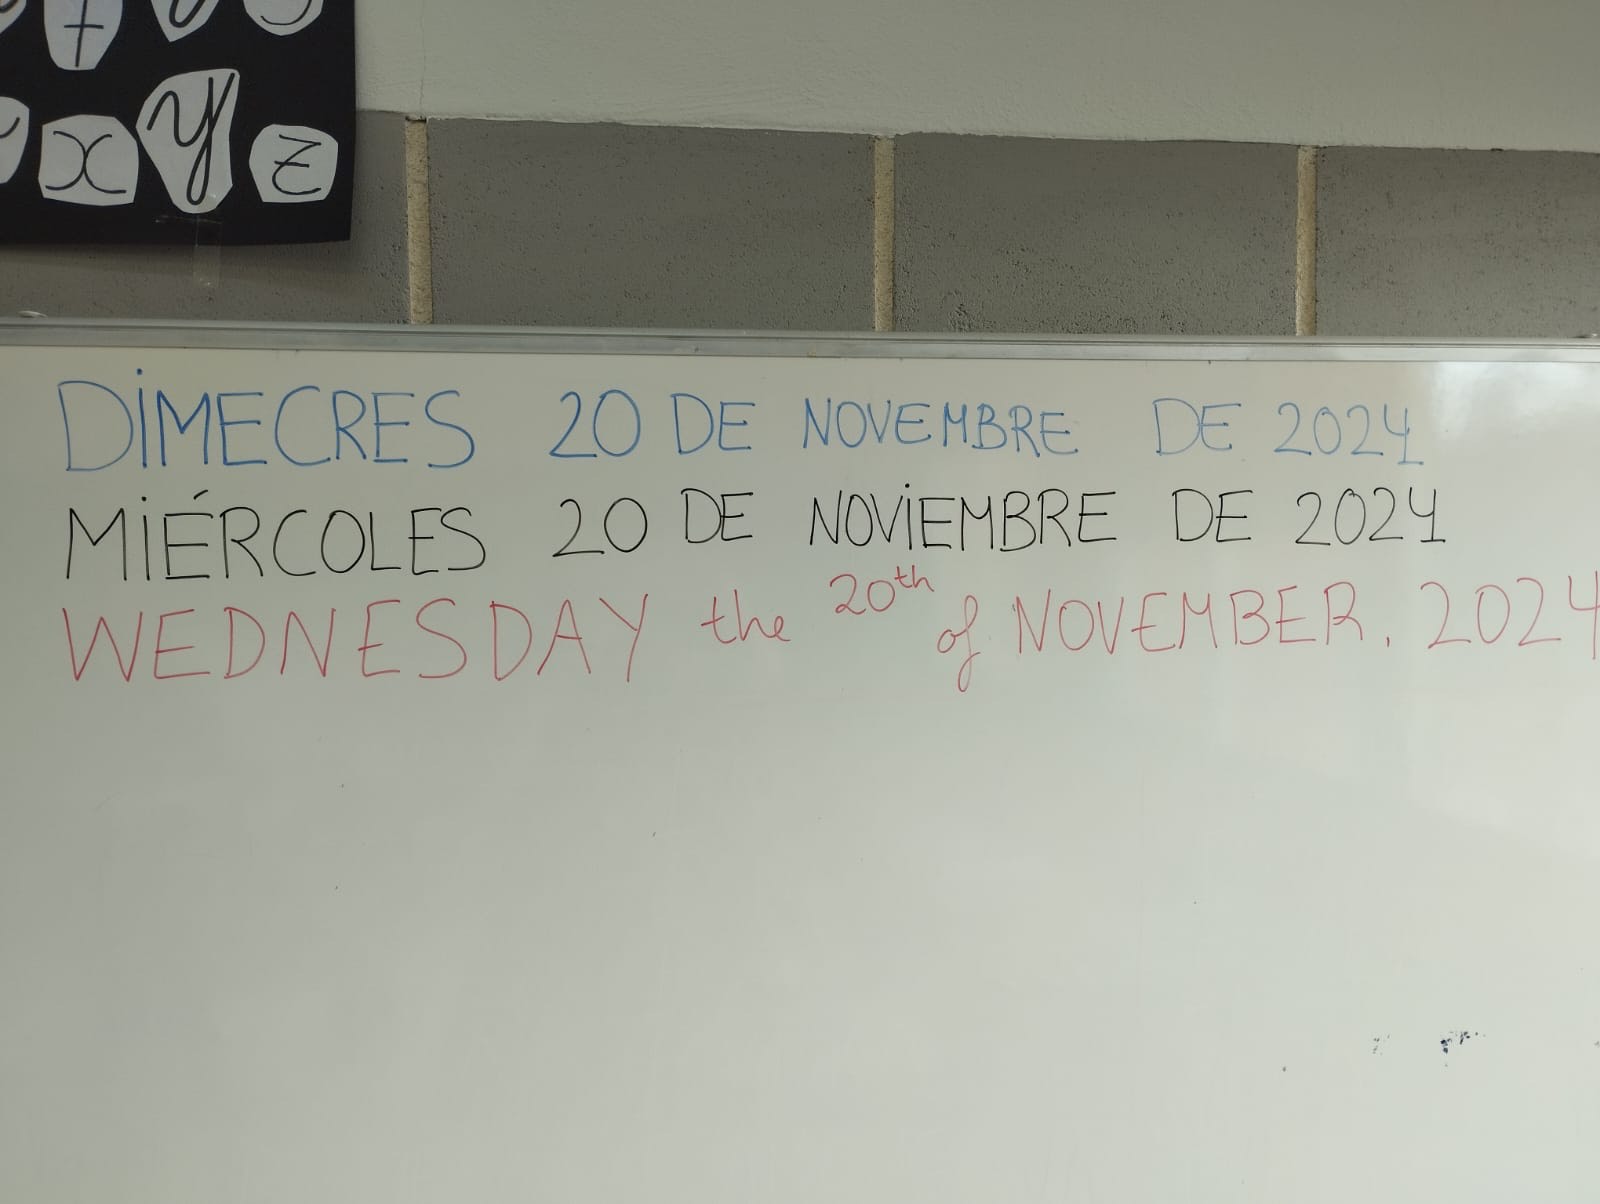 t
x y z
DIMECRES 20 DE NOVEMBRE DE 2024
MIÉRCOLES 20 DE NOVIEMBRE DE 2024
WEDNESDAY the 20th of NOVEMBER, 2024